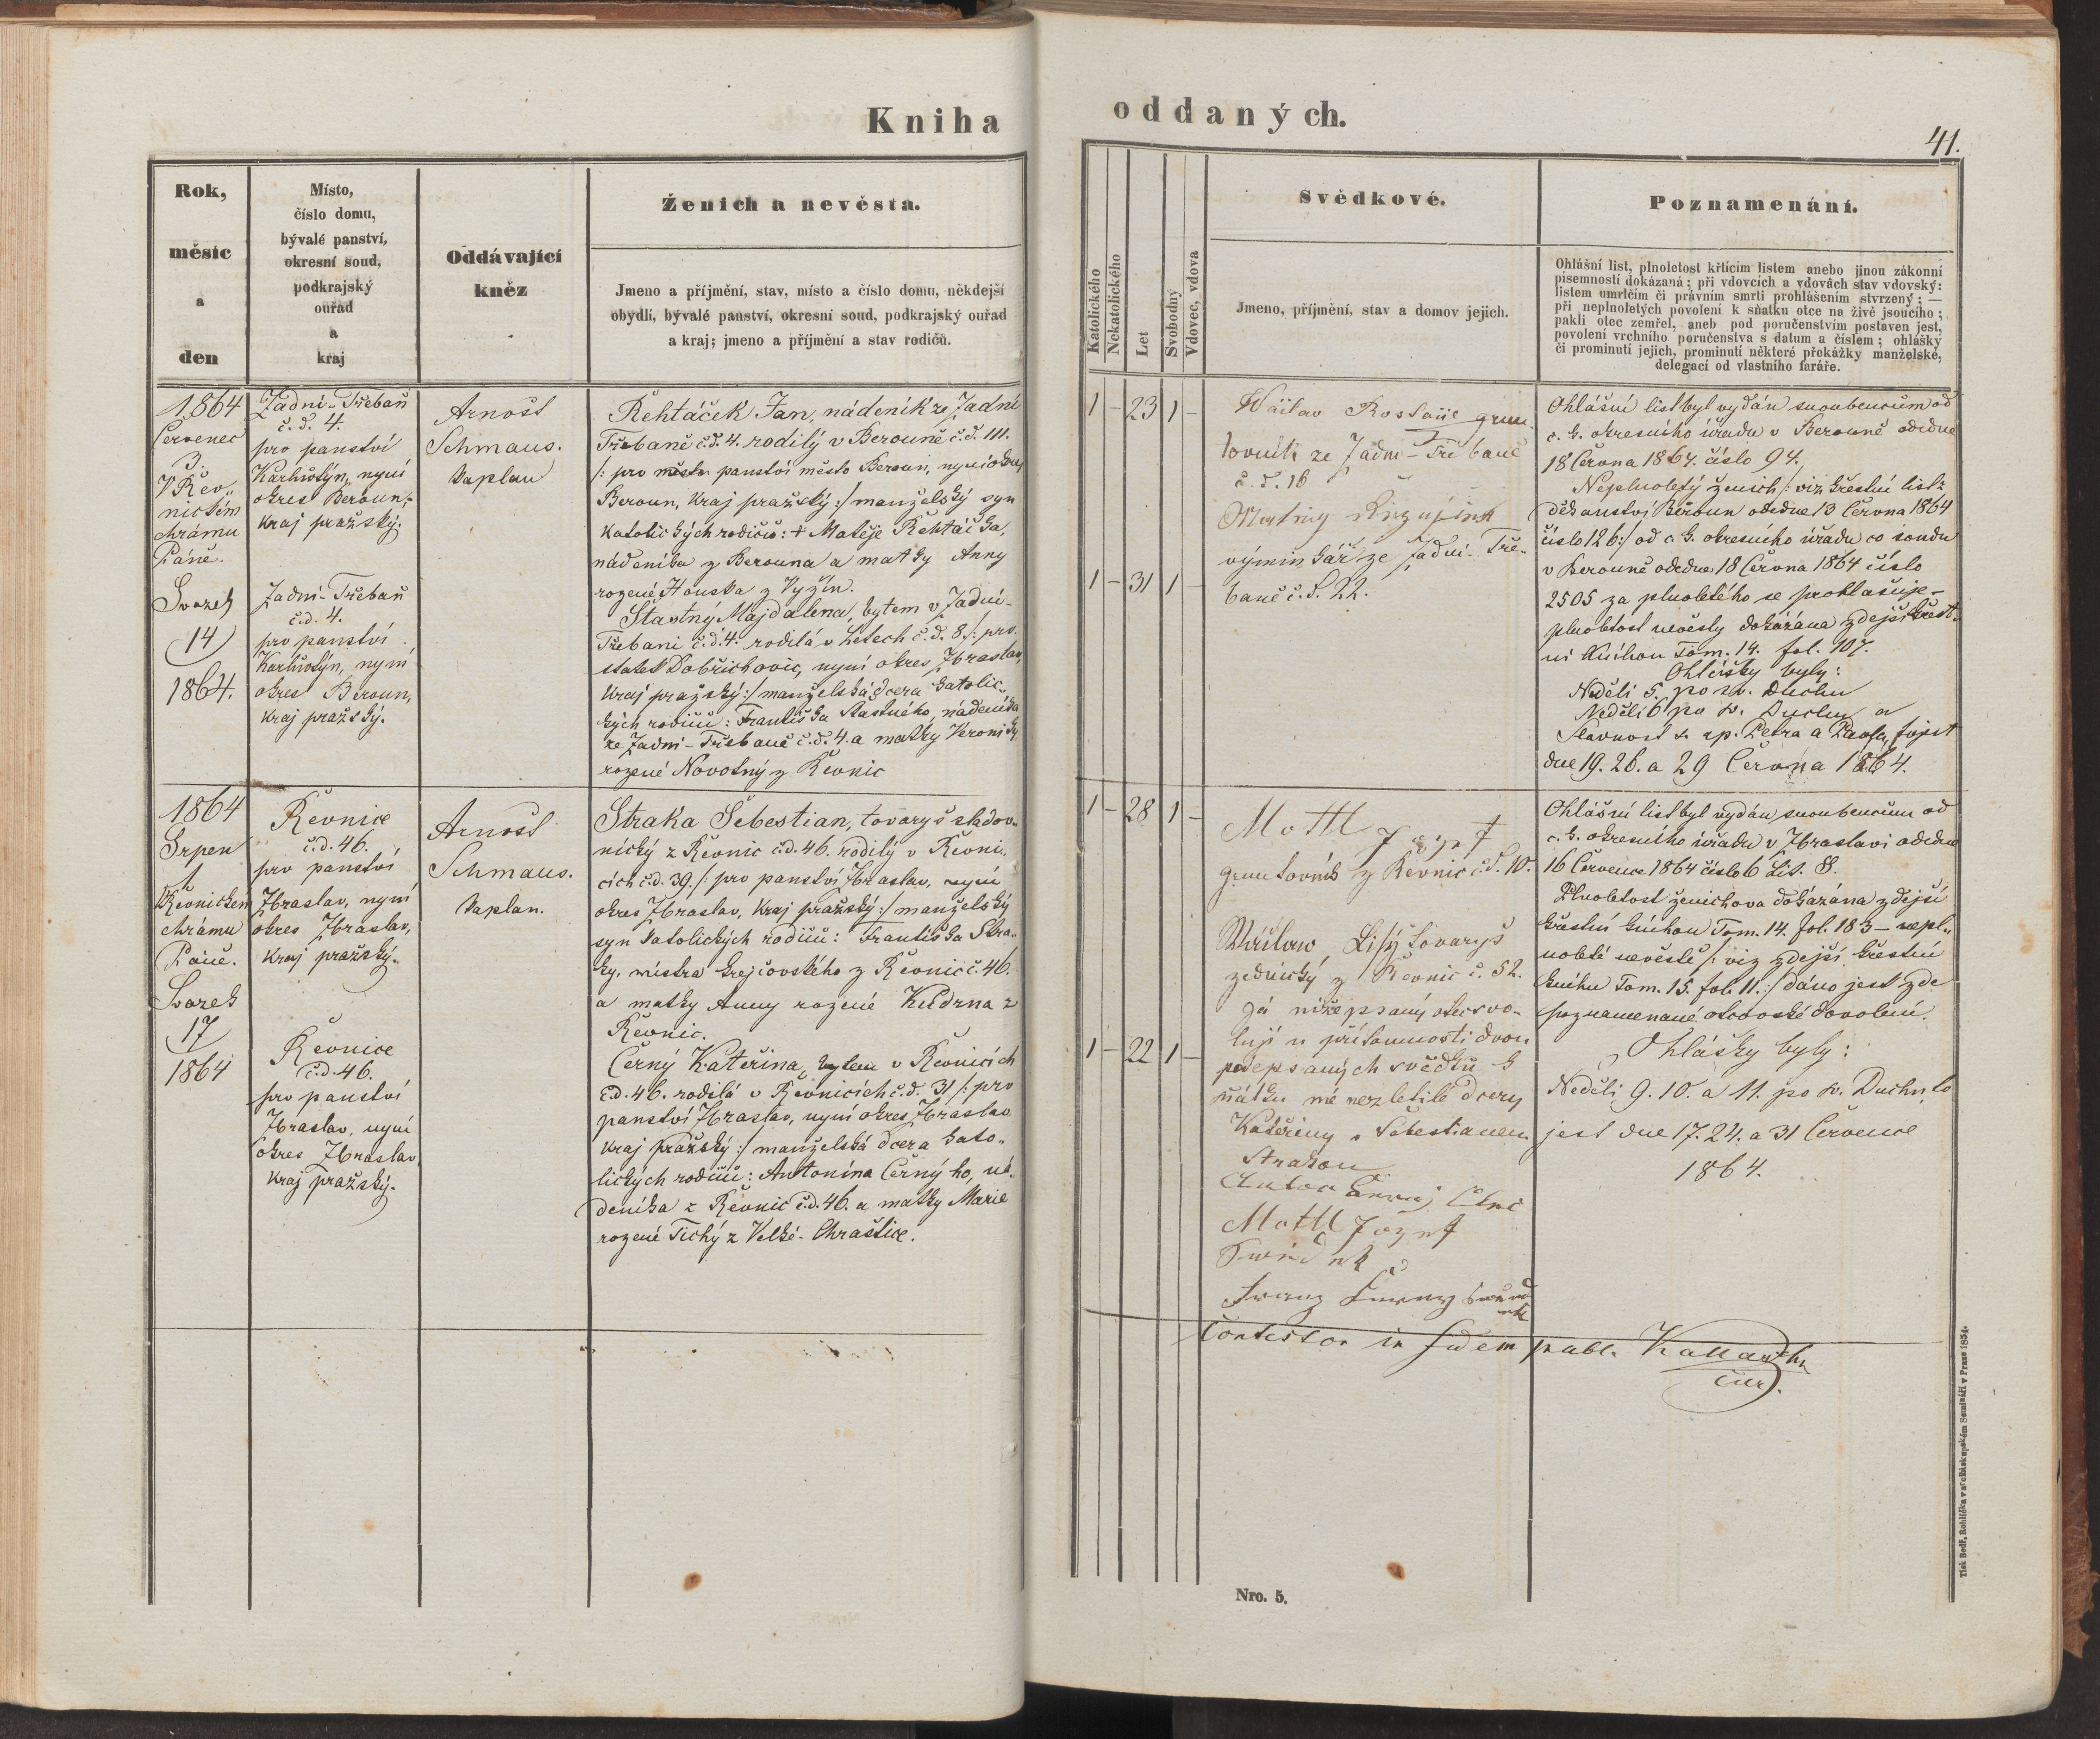 Kniha
oddaných.
41.
Rok,
měsíc
a
den
Místo,
číslo domu,
bývalé panství,
okresní soud,
podkrajský
ouřad
a
kraj
Oddávající
kněz
Ženich a nevěsta.
Jmeno a příjmění, stav, místo a číslo domu, někdejší
obydlí, bývalé panství, okresní soud, podkrajský ouřad
a kraj; jmeno a příjmění a stav rodičů.
Katolického
Nekatolického
Let
Svobodný
Vdovec, vdova
Svědkové.
Jmeno, příjmění, stav a domov jejich.
Poznamenání.
Ohlášní list, plnoletost křtícím listem anebo jinou zákonní
písemností dokázaná; při vdovcích a vdovách stav vdovský:
listem umrlčím či právním smrti prohlášením stvrzený; —
při neplnoletých povolení k sňatku otce na živě jsoucího;
pakli otec zemřel, aneb pod poručenstvím postaven jest,
povolení vrchního poručenstva s datum a číslem; ohlášky
či prominutí jejich, prominutí některé překážky manželské,
delegací od vlastního faráře.
1864
Červenec
3.
V Řev„
nickém
chrámu
Páně.
Svazek
14
1864.
Zadní-Třebaň
č.d. 4.
pro panství
Karlštýn, nyní
okres Beroun,
kraj pražský.
Zadní-Třebaň
č.d. 4.
pro panství
Karlštýn, nyní
okres Beroun,
kraj pražský.
Arnošt
Schmaus.
Kaplan
Řehtáček Jan, nádeník ze Zadní
Třebaně č.d. 4. rodilý v Berouně č.d. 111.
/: pro město panství město Beroun, nyní okres
Beroun, kraj pražský:/ manželský syn
katolických rodičů: + Matěje Řehtáčka,
nádeníka z Berouna a matky Anny
rozené Houska z Vyžín.
Šťastný Majdalena, bytem v Zadní-
Třebani č.d. 4. rodilá v Letech č.d. 8. /: pro
statek Dobřichovic, nyní okres Zbraslav,
kraj pražský:/ manželská dcera katolic„
kých rodičů: Františka Šťastného, nádeníka
ze Zadní-Třebaně č.d. 4. a matky Veroniky
rozené Novotný z Řevnic
1 - 23 1 -
1 - 31 1 -
grun
tovník ze Zadní-Třebaně
č.d. 16
výminkář ze Zadní-Tře„
baně č.d. 22.
Ohlášní list byl vydán snoubencům od
c. k. okresního úřadu v Berouně odedne
18 Června 1864. číslo 94.
Neplnoletý ženich /: viz křestní list:
děkanství Beroun odedne 13 Června 1864
číslo 126:/ od c. k. okresního úřadu co soudu
v Berouně odedne 18 Června 1864 číslo
2505 za plnoletého se prohlašuje -
plnoletost nevěsty dokázána zdejší křest„
ní knihou Tom. 14. fol. 107.
Ohlášky byly:
Neděli 5. po sv. Duchu
Neděli 6 po sv. Duchu a
Slavnost s. ap. Petra a Pavla, tojest
dne 19. 26. a 29 Června 1864.
1864
Srpen
1
Řevnickém
chrámu
Páně.
Svazek
17
1864
Řevnice
č.d. 46.
pro panství
Zbraslav, nyní
okres Zbraslav,
kraj pražský.
Řevnice
č.d. 46.
pro panství
Zbraslav, nyní
okres Zbraslav,
kraj pražský.
Arnošt
Schmaus.
Kaplan.
Straka Šebestian, tovaryš sladov„
nický z Řevnic č.d. 46. rodilý v Řevni„
cích č.d. 39. /: pro panství Zbraslav, nyní
okres Zbraslav, kraj pražský:/ manželský
syn katolických rodičů: Františka Stra„
ky, mistra krejčovského z Řevnic č. 46.
a matky Anny rozené Kudrna z
Řevnic.
Černý Kateřina, bytem v Řevnicích
č.d. 46. rodilá v Řevnicích č.d. 31 /: pro
panství Zbraslav, nyní okres Zbraslav
kraj pražský:/ manželská dcera kato„
lických rodičů: Antonína Černýho, ná„
deníka z Řevnic č.d. 46. a matky Marie
rozené Tichý z Velké-Chraštice.
1 - 28 1 -
1 - 22 1 -
Mottl Jozef
gruntovník z Řevnic č.d. 10.
Wáclaw Lisý tovaryš
zednický z Řevnic č. 52.
Já nížepsaný otec svo„
luji u přítomnosti dvou
podepsaných svědků k
sňátku mé nezletilé dcery
Kateřiny s Šebestianem
Strakou
Anton Černý Otec
Mottl Jozef
Swědek
Franz Černý Swědek
Contestor in fidem publ.
cur.
Ohlášní list byl vydán snoubencům od
c. k. okresního úřadu v Zbraslavi odedne
16 Července 1864 číslo 6 Lit. S.
Plnoletost ženichova dokázána zdejší
křestní knihou Tom. 14. fol. 183 - nepl„
noleté nevěstě /: viz zdejší křestní
knihu Tom. 15. fol. 11.:/ dáno jest zde
poznamenané otcovské dovolení.
Ohlášky byly:
Neděli 9. 10. a 11. po sv. Duchu, to
jest dne 17. 24. a 31 Července
1864.
Nro. 5.
Tisk Bedř. Rohlíčka v arcibiskupském Semináři v Praze 1854.